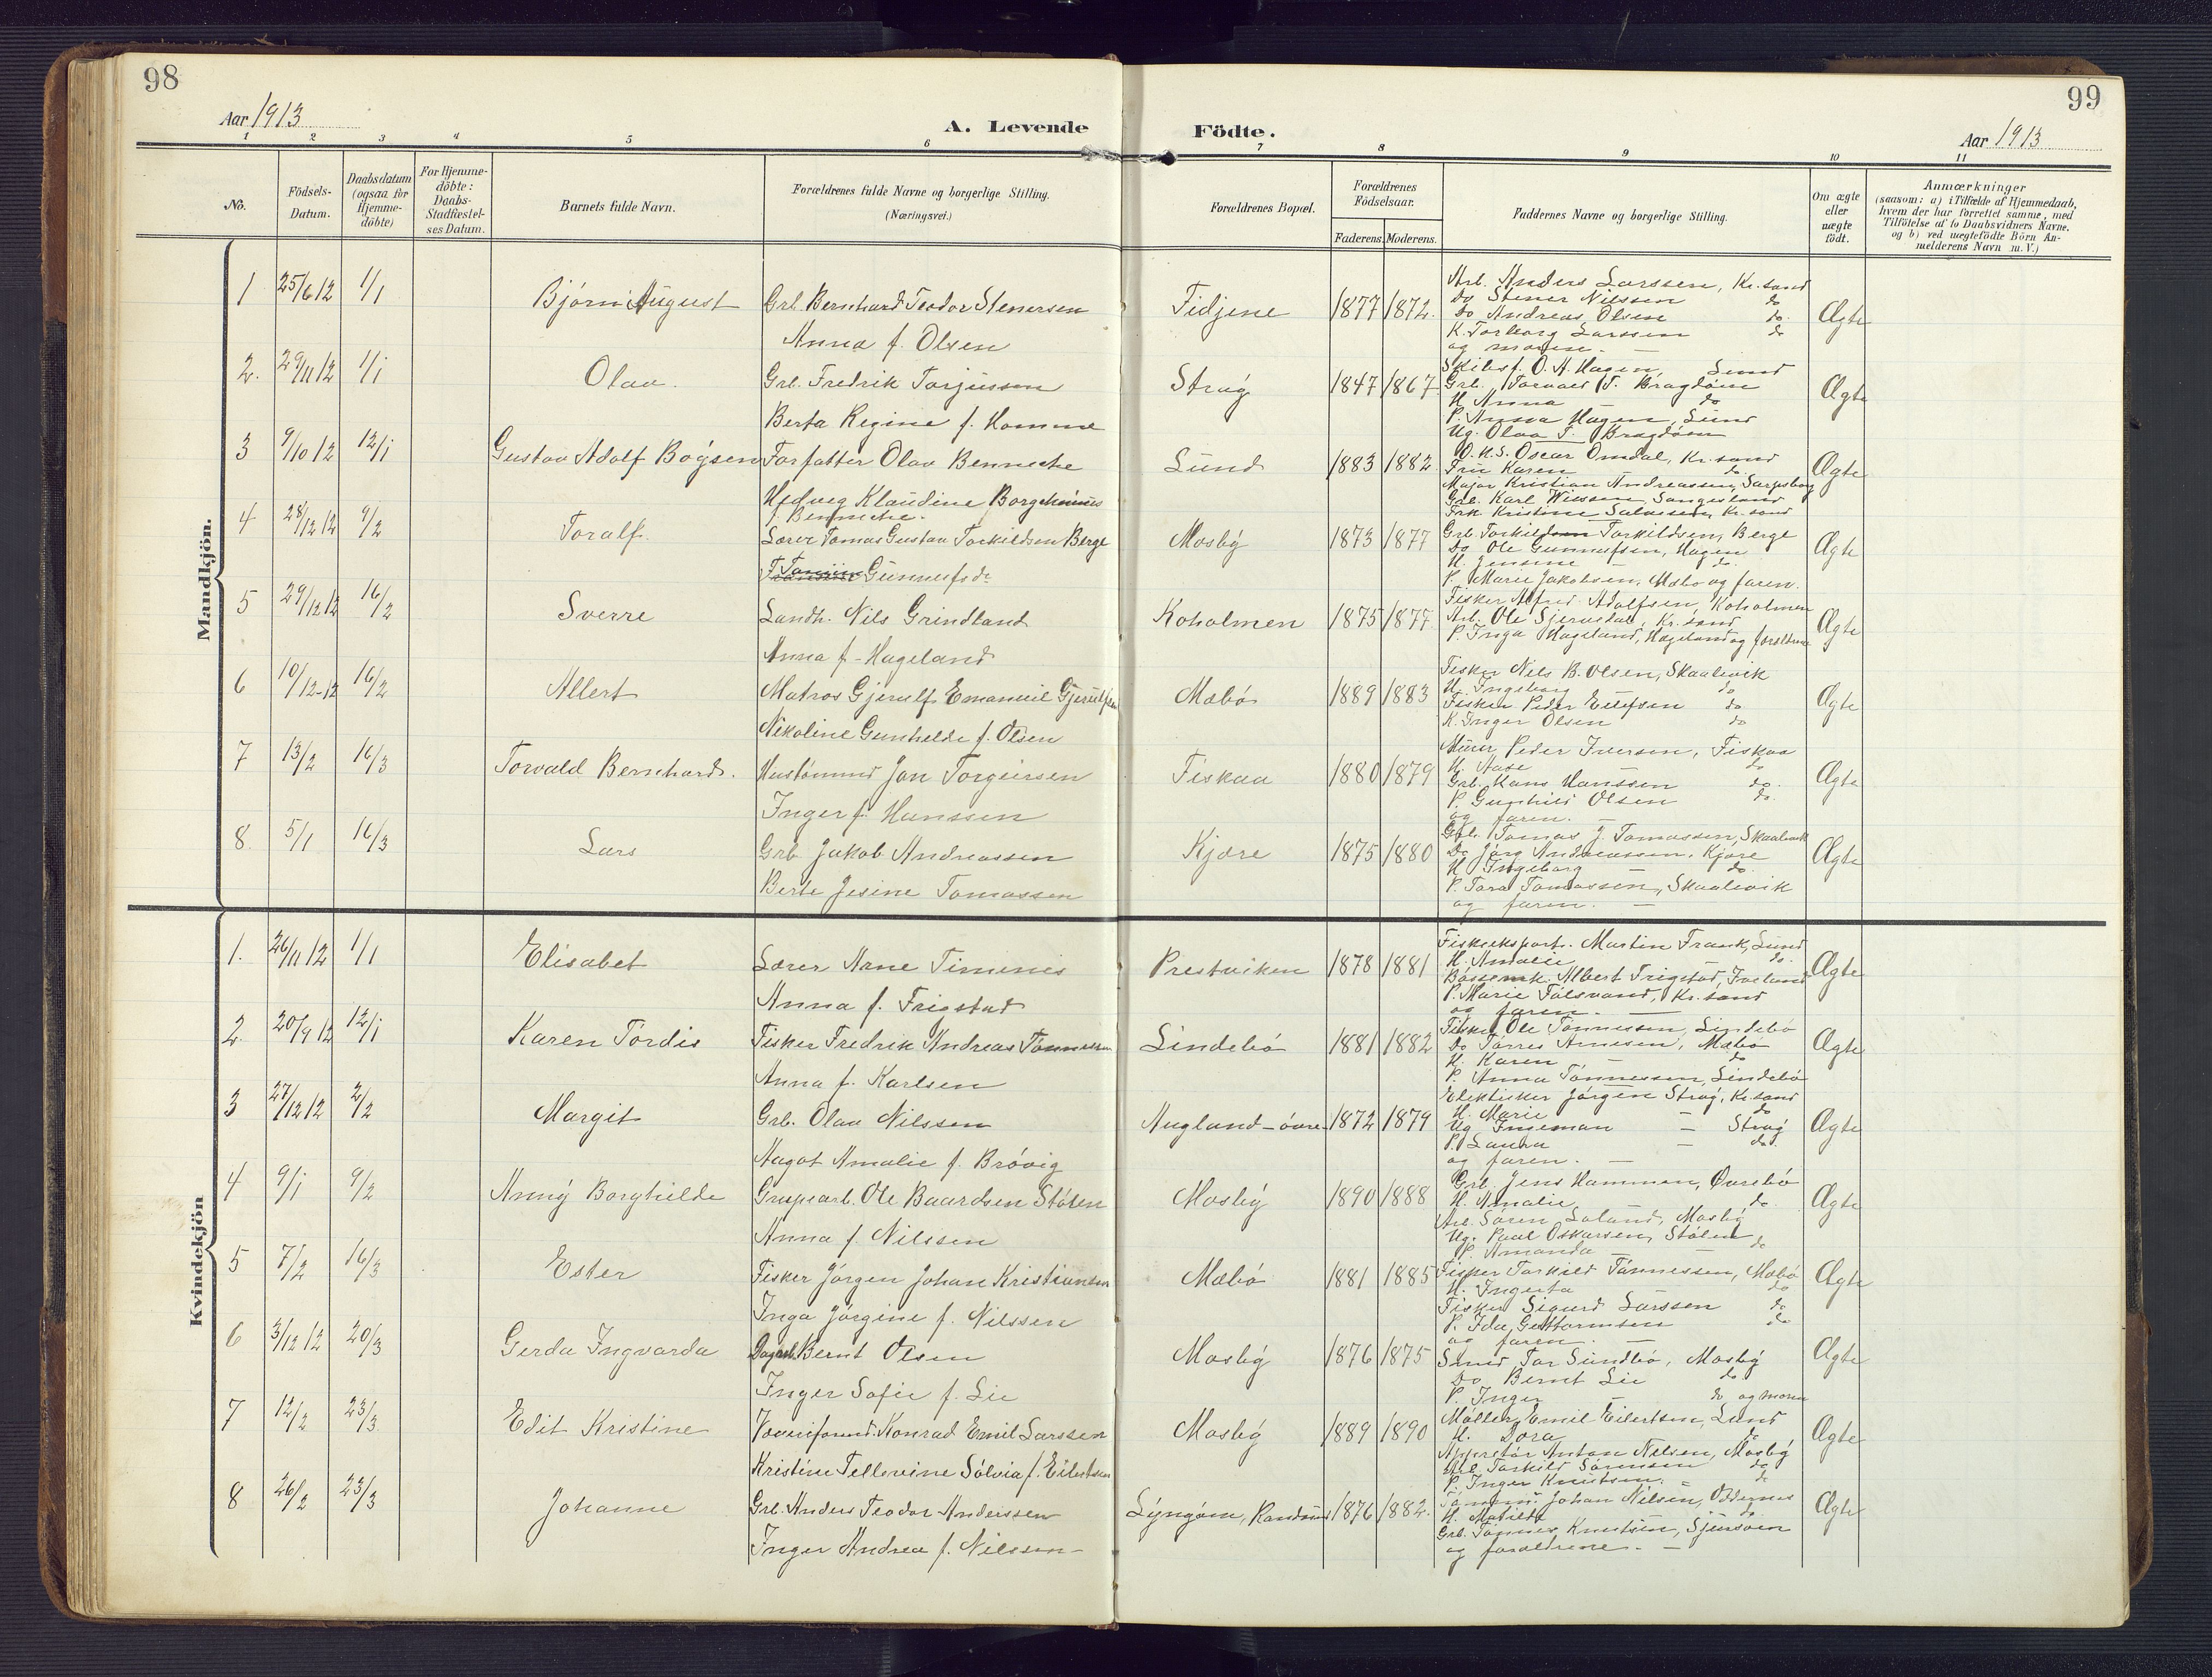 98
99
Aar 1913
A. Levende Födte.
Aar 1913
1 2 3 4 5 6 7 8 9 10 11
No.
Födsels-Datum.
Daabsdatum (ogsaa for Hjemme-döbte)
For Hjemme-döbte: Daabs-Stadfæstel-ses Datum.
Barnets fulde Navn.
Forældrenes fulde Navne og borgerlige Stilling.
(Næringsvei.)
Forældrenes Bopæl.
Forældrenes Födselsaar.
Faderens. Moderens.
Faddernes Navne og borgerlige Stilling.
Om ægte eller uægte födt.
Anmærkninger
(saasom: a) i Tilfælde af Hjemmedaab,
hvem der har forrettet samme, med
Tilföielse af to Daabsvidners Navne,
og b) ved uægtefödte Börn An-
melderens Navn m. V.)
Mandkjön.
1 25/6 12 1/1 Bjørn August Grb. Bernhard Teodor Stenersen Tidjene 1877 1872. Ægte
Anna f. Olsen
Arb. Anders Larssen, Kr.sand
do Stener Nilssen do
do Andreas Olsen do.
K. Torborg Larssen do
og moren. —
2. 29/11 12 1/1 Olav. Grb. Fredrik Torjussen Straý 1847 1867. Ægte
Berta Regine f. Homme
Skibsf. O. A. Hagen, Lund
Grb. Torvald T. Bragdøen
H. Anna do
P. Anna Hagen, Lund
Ug. Olav T. Bragdøen
3 9/10 12 12/1 Gustav Adolf Boýsen Forfatter Olav Benneche Lund 1883 1882. Ægte
Hedvig Klaudine Borghinus
f. Benneche.
Oscar Omdal, Kr.sand
Fru Karen do.
Major Kristian Andreassen, Sarpsborg
Grb. Karl Wiessen, Sangesland
Frk Kristine Salvesen, Kr.sand
4 28/12 12 9/2 Toralf. Lærer Tomas Gustav Torkildsen Berge Mosbý 1873 1877 Ægte
Gunnufsdr
Grb. Torkild Torkildsen, Berge
Do Ole Gunnufsen, Hagen
H. Jensine — do.
P. Marie Jakobsen, Mæbø og faren.
5 29/12 12 16/2 Sverre Landh. Nils Grindland Koholmen 1875 1877 Ægte
Anna f. Hageland
Fisker Alfred Adolfsen, Koholmen
Arb. Ole Gjerusdal, Kr.sand
P. Inga Hageland, Hageland og foreldrene
6 10/12-12 16/2 Allert Matros Gjerulf Emanuel Gjerulfsen Mæbø 1889 1883 Ægte
Nikoline Gunhilde f. Olsen
Fisker Nils B. Olsen, Skaalevik
H. Ingeborg do
Fisker Peder Eilefsen do
K. Inger Olsen do
7 13/2 16/3 Torvald Bernhard. Hustømmd Jon Torgeirsen Fiskaa 1880 1879 Ægte
Inger f. Hanssen
Murer Peder Iversen, Fiskaa
H. Aase do
Grb. Hans Hanssen do.
P. Gunhild Olsen do.
og faren. —
8. 5/1 16/3 Lars Grb Jakob Andreassen Kjære 1875 1880 Ægte
Berte Jesine Tomassen
Grb. Tomas J. Tomassen, Skaalevik
Do Jørg Andreassen, Kjære
H Ingeborg do.
P. Tora Tomassen, Skaalevik
og faren. —
Kvindekjön
1. 26/11 12 1/1 Elisabet Lærer Arne Timenes Prestviken 1878 1881 Ægte
Anna f. Frigstad
Fiskeeksport. Martin Frank, Lund
H. Amalie do.
Albert Frigstad, Iveland
P. Marie Tolsvand, Kr.sand
og faren. —
2. 20/9 12 12/1 Karen Tordis Fisker Fredrik Andreas Tønnessen Lindebø 1881 1882 Ægte
Anna f. Karlsen
Fisker Ole Tønnessen, Lindebø
Do Tørres Arnesen, Mæbø
H. Karen — do
P. Anna Tønnessen, Lindebø
3 27/12 12 2/2 Margit Grb. Olav Nilssen Augland-øvre 1872 1879 Ægte
Aagot Amalie f. Brøvig
Elektisker Jørgen Straý, Kr.sand
H. Marie do
Ug Ingeman — Straý
P. Laura — do.
og faren. —
4 9/1 9/2 Anný Borghilde Grubearb. Ole Baardsen Støten Mosbý 1890 1888 Ægte
Anna f. Nilssen
Grb. Jens Hammen, Øvrebø
H. Amalie do.
Arb. Søren Loland, Mosbý
Ug. Paul Oskarsen, Stølen
P. Amanda — do
5 7/2 16/3 Ester Fisker Jørgen Johan Kristiansen Mæbø 1881 1885 Ægte
Inga Jørgine f. Nilssen
Fisker Torkild Tønnessen, Mæbø
H. Ingerta do
Fisker Sigurd Larssen do
P. Ida Guttormsen do
og faren. —
6 3/12 12 20/3 Gerda Ingvarda Dagarb Bernt Olsen Mosbý 1876 1875 Ægte
Inger Sofie f. Lie
Smed Tor Sundbø, Mosbý
Do Bernt Lie do
P. Inger — do og moren
7 12/2 23/3 Edit Kristine Konrad Emil Larssen Mosbý 1889 1890 Ægte
Kristine Tellevine Sølvia f. Eilertsen
Møller Emil Eilertsen, Lund
H. Dora do
Appretør Anton Nilsen, Mosbý
Torkild Sørensen do
P. Inger Knutsen. — do
8 26/2 23/3 Johanne Grb. Anders Teodor Anderssen Lýngøen, Randøsund 1876 1882. Ægte
Inger Andrea f. Nilssen
Johan Nilsen, Oddernes
H. Matilde do
Grb. Tønnes Knutsen,
og foreldrene. —